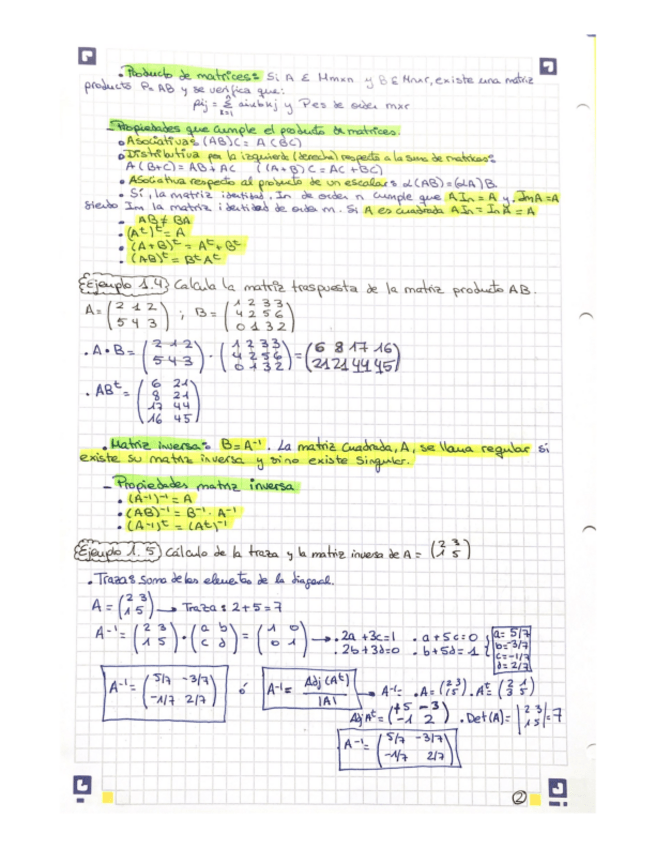 • Producto de matrices: Si A ε Mmxn y B ε Mnxr, existe una matriz
producto P=AB y se verifica que:
pij = Σ aikbkj y P es de orden mxr
k=1
– Propiedades que cumple el producto de matrices.
• Asociativa: (AB)C = A(BC)
• Distributiva por la izquierda (derecha) respecto a la suma de matrices:
A(B+C) = AB + AC ((A+B)C = AC + BC)
• Asociativa respecto al producto de un escalar: α(AB) = (αA)B
• Si, la matriz identidad, In de orden n cumple que A In = A y ImA = A
siendo Im la matriz identidad de orden m. Si A es cuadrada AIn = InA = A
• AB ≠ BA
• (Aᵗ)ᵗ = A
• (A+B)ᵗ = Aᵗ + Bᵗ
• (AB)ᵗ = Bᵗ Aᵗ
Ejemplo 1.4. Calcula la matriz traspuesta de la matriz producto AB.
A = (2 1 2 / 5 4 3) ; B = (1 2 3 3 / 4 2 5 6 / 0 1 3 2)
• A • B = (2 1 2 / 5 4 3) · (1 2 3 3 / 4 2 5 6 / 0 1 3 2) = (6 8 17 16 / 21 21 44 45)
• ABᵗ = (6 21 / 8 21 / 17 44 / 16 45)
• Matriz inversa: B = A⁻¹. La matriz cuadrada, A, se llama regular si
existe su matriz inversa y si no existe singular.
– Propiedades matriz inversa
• (A⁻¹)⁻¹ = A
• (AB)⁻¹ = B⁻¹ · A⁻¹
• (A⁻¹)ᵗ = (Aᵗ)⁻¹
Ejemplo 1.5 Cálculo de la traza y la matriz inversa de A = (2 3 / 1 5)
• Traza: Soma de los elementos de la diagonal.
A = (2 3 / 1 5) → Traza: 2+5 = 7
A⁻¹ = (2 3 / 1 5) · (a b / c d) = (1 0 / 0 1) → • 2a + 3c = 1 • a + 5c = 0 • 2b + 3d = 0 • b + 5d = 1 { a = 5/7 b = -3/7 c = -1/7 d = 2/7
A⁻¹ = (5/7 -3/7 / -1/7 2/7) ó A⁻¹ = Adj(Aᵗ) / |A| → A⁻¹ = • A = (2 3 / 1 5) • Aᵗ = (2 1 / 3 5)
AdjAᵗ = (+5 -3 / -1 2) • Det(A) = |2 3 / 1 5| = 7
A⁻¹ = (5/7 -3/7 / -1/7 2/7)
2